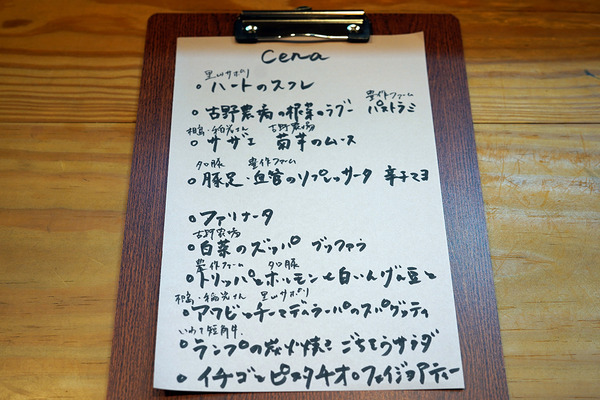 Cena
里山サポリ
○ ハートのスフレ
豊作ファーム
○ 古野農場の根菜のラグー パストラミ
相島・稲光さん 古野農場
○ サザエ 菊芋のムース
加ト豚 豊作ファーム
○ 豚足・血管のソプレッサータ 辛子マヨ
○ ファリナータ
古野農場
○ 白菜のズッパ ブッファラ
豊作ファーム 加ト豚
○ トリッパとホルモンと白いんげん豆と
相島・稲光さん 里山サポリ
○ アワビとチーマディラーパのスパゲッティ
いわて短角牛
○ ランプの炭火焼き ごちそうサラダ
○ イチゴとピスタチオ。フェイジョアティー